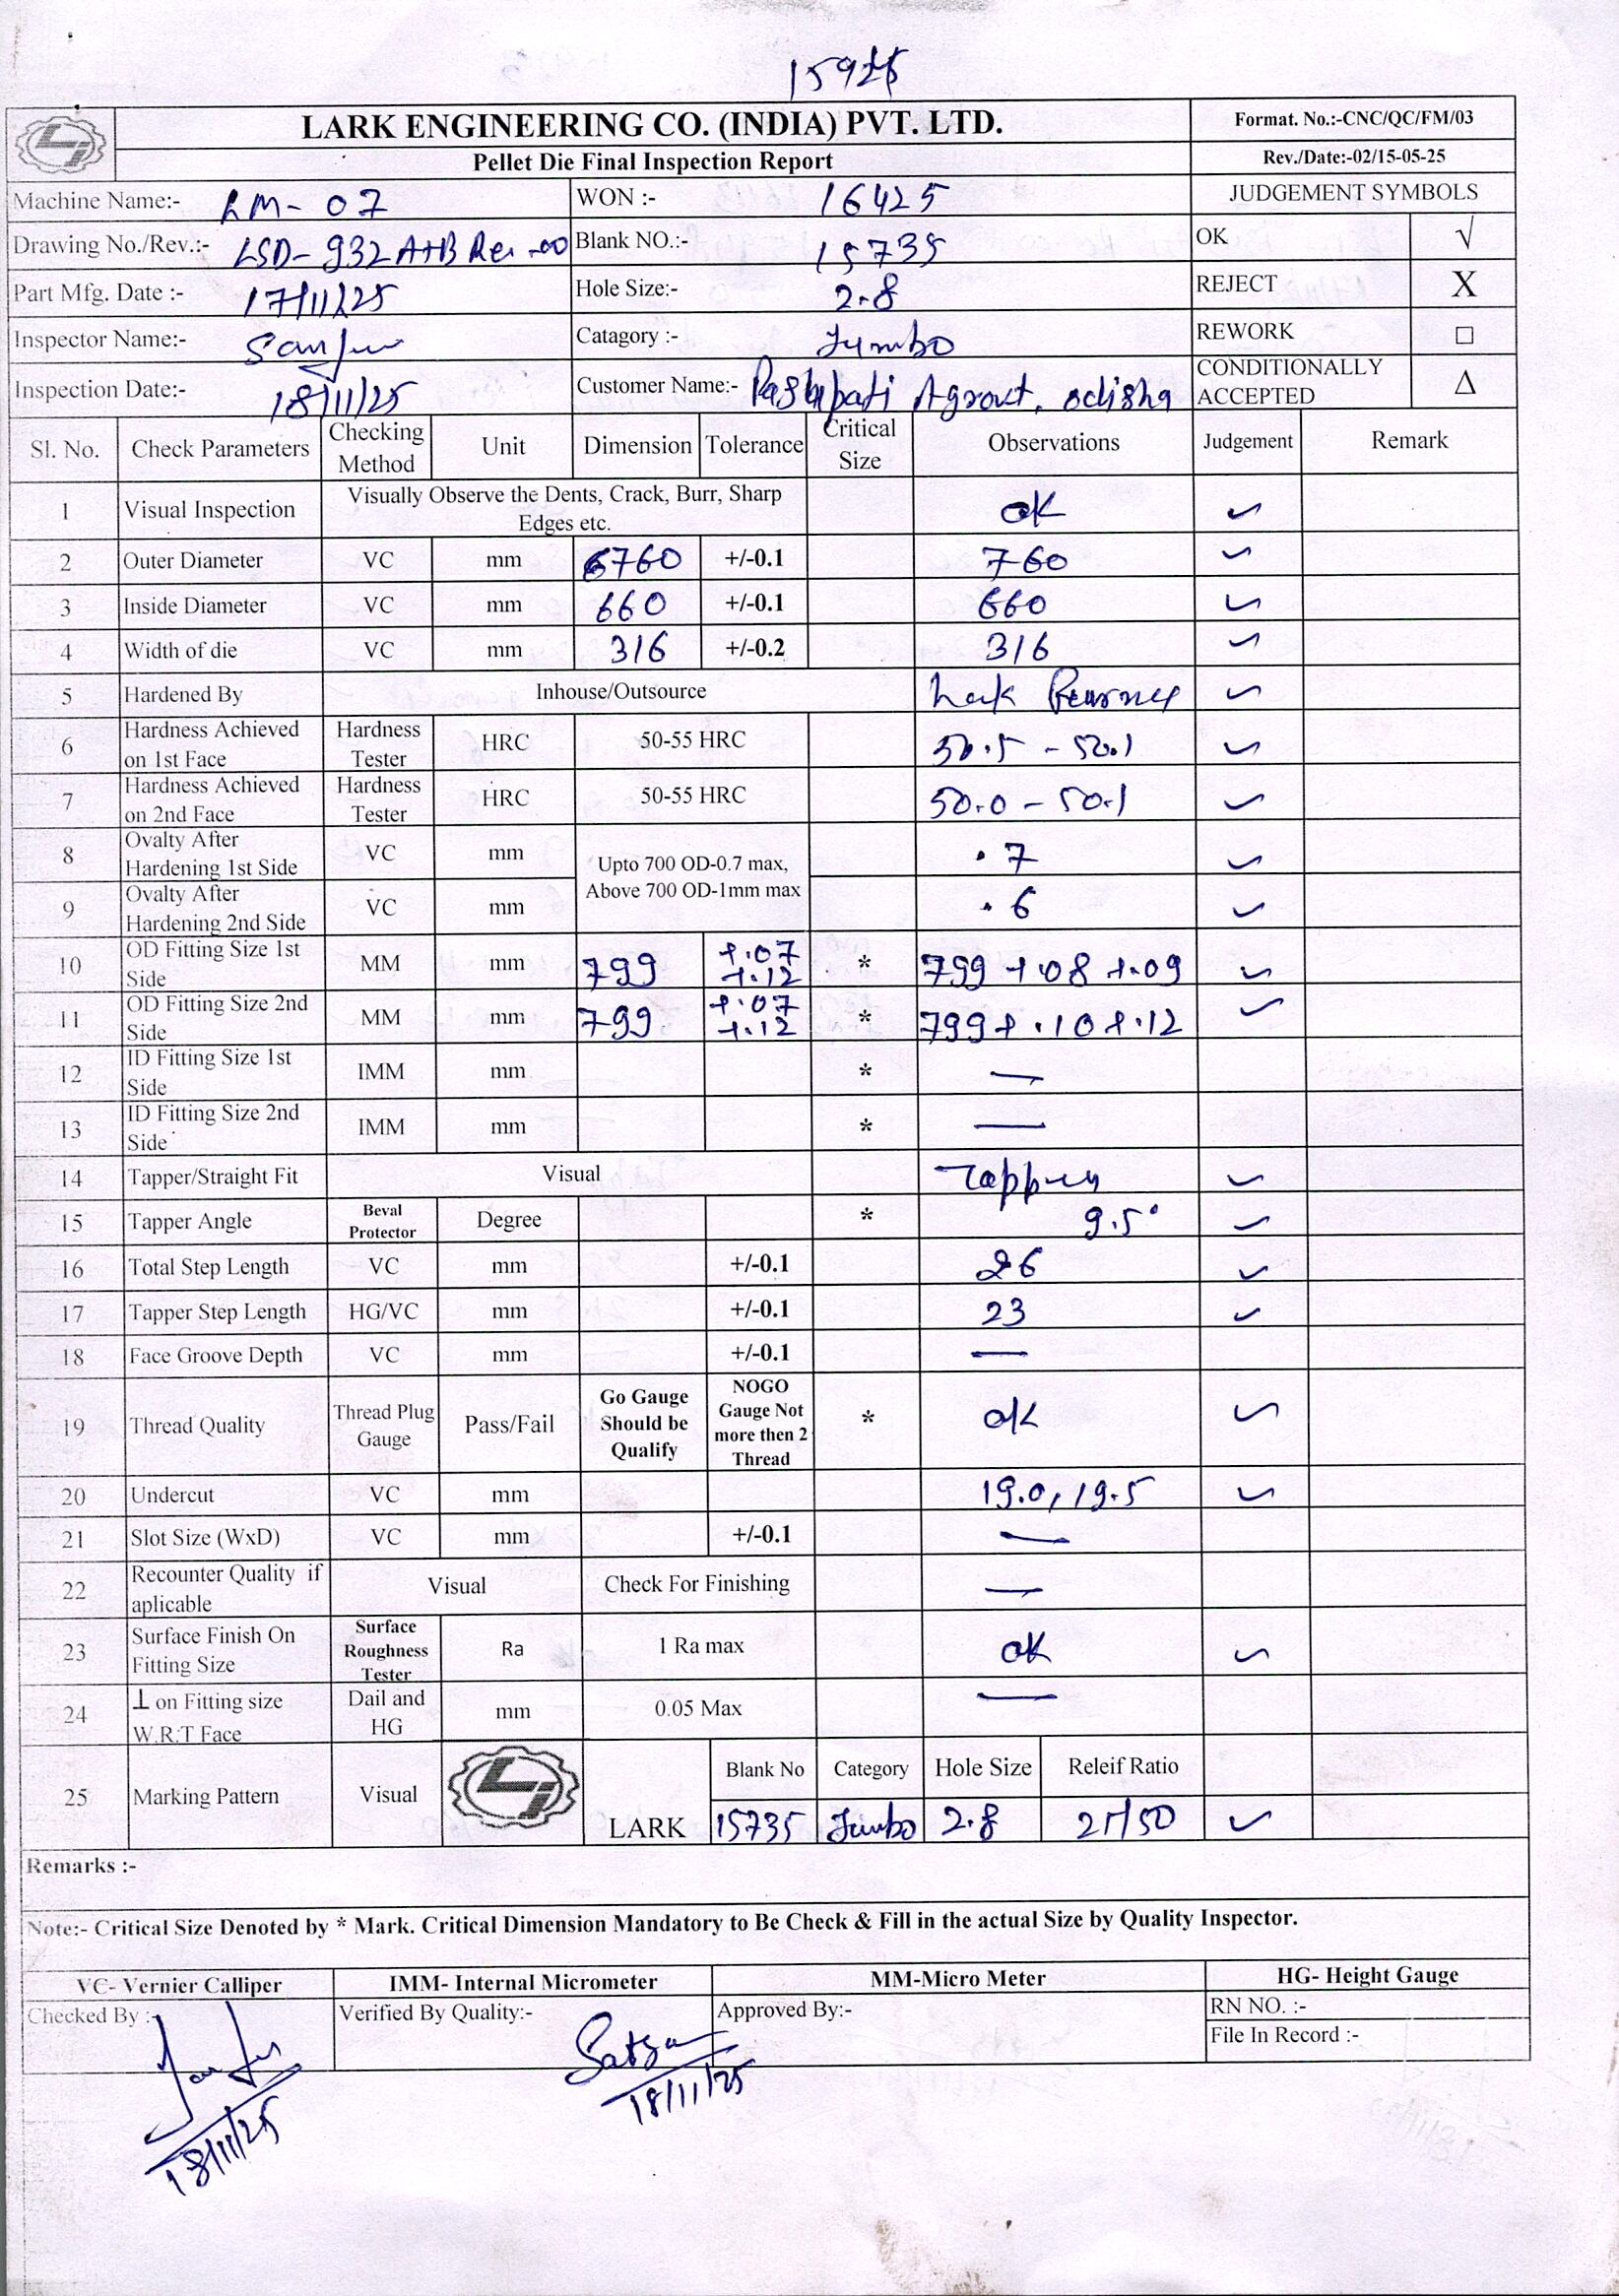 15925
LARK ENGINEERING CO. (INDIA) PVT. LTD. Format. No.:-CNC/QC/FM/03
Pellet Die Final Inspection Report Rev./Date:-02/15-05-25
Machine Name:- LM-07 WON :- 16425 JUDGEMENT SYMBOLS
Drawing No./Rev.:- LSD-932 A+B Rev-00 Blank NO.:- 15735 OK √
Part Mfg. Date :- 17/11/25 Hole Size:- 2.8 REJECT X
Inspector Name:- Sanju Catagory :- Jumbo REWORK □
Inspection Date:- 18/11/25 Customer Name:- Pashupati Agrovet, odisha CONDITIONALLY ACCEPTED Δ
Sl. No. Check Parameters Checking Method Unit Dimension Tolerance Critical Size Observations Judgement Remark
1 Visual Inspection Visually Observe the Dents, Crack, Burr, Sharp Edges etc. ok ✓
2 Outer Diameter VC mm 760 +/-0.1 760 ✓
3 Inside Diameter VC mm 660 +/-0.1 660 ✓
4 Width of die VC mm 316 +/-0.2 316 ✓
5 Hardened By Inhouse/Outsource Lark ✓
6 Hardness Achieved on 1st Face Hardness Tester HRC 50-55 HRC 50.5 - 50.1 ✓
7 Hardness Achieved on 2nd Face Hardness Tester HRC 50-55 HRC 50.0 - 50.1 ✓
8 Ovalty After Hardening 1st Side VC mm Upto 700 OD-0.7 max, Above 700 OD-1mm max .7 ✓
9 Ovalty After Hardening 2nd Side VC mm .6 ✓
10 OD Fitting Size 1st Side MM mm 799 +.07 +.12 * 799 +.08 +.09 ✓
11 OD Fitting Size 2nd Side MM mm 799 +.07 +.12 * 799 +.10 +.12 ✓
12 ID Fitting Size 1st Side IMM mm * —
13 ID Fitting Size 2nd Side IMM mm * —
14 Tapper/Straight Fit Visual Tapper ✓
15 Tapper Angle Beval Protector Degree * 9.5° ✓
16 Total Step Length VC mm +/-0.1 26 ✓
17 Tapper Step Length HG/VC mm +/-0.1 23 ✓
18 Face Groove Depth VC mm +/-0.1 —
19 Thread Quality Thread Plug Gauge Pass/Fail Go Gauge Should be Qualify NOGO Gauge Not more then 2 Thread * ok ✓
20 Undercut VC mm 19.0, 19.5 ✓
21 Slot Size (WxD) VC mm +/-0.1 —
22 Recounter Quality if aplicable Visual Check For Finishing —
23 Surface Finish On Fitting Size Surface Roughness Tester Ra 1 Ra max ok ✓
24 ⊥ on Fitting size W.R.T Face Dail and HG mm 0.05 Max —
25 Marking Pattern Visual LARK Blank No Category Hole Size Releif Ratio
15735 Jumbo 2.8 25/50 ✓
Remarks :-
Note:- Critical Size Denoted by * Mark. Critical Dimension Mandatory to Be Check & Fill in the actual Size by Quality Inspector.
VC- Vernier Calliper IMM- Internal Micrometer MM-Micro Meter HG- Height Gauge
Checked By :- Verified By Quality:- Approved By:- RN NO. :-
File In Record :-
Sanju Satya
18/11/25 18/11/25